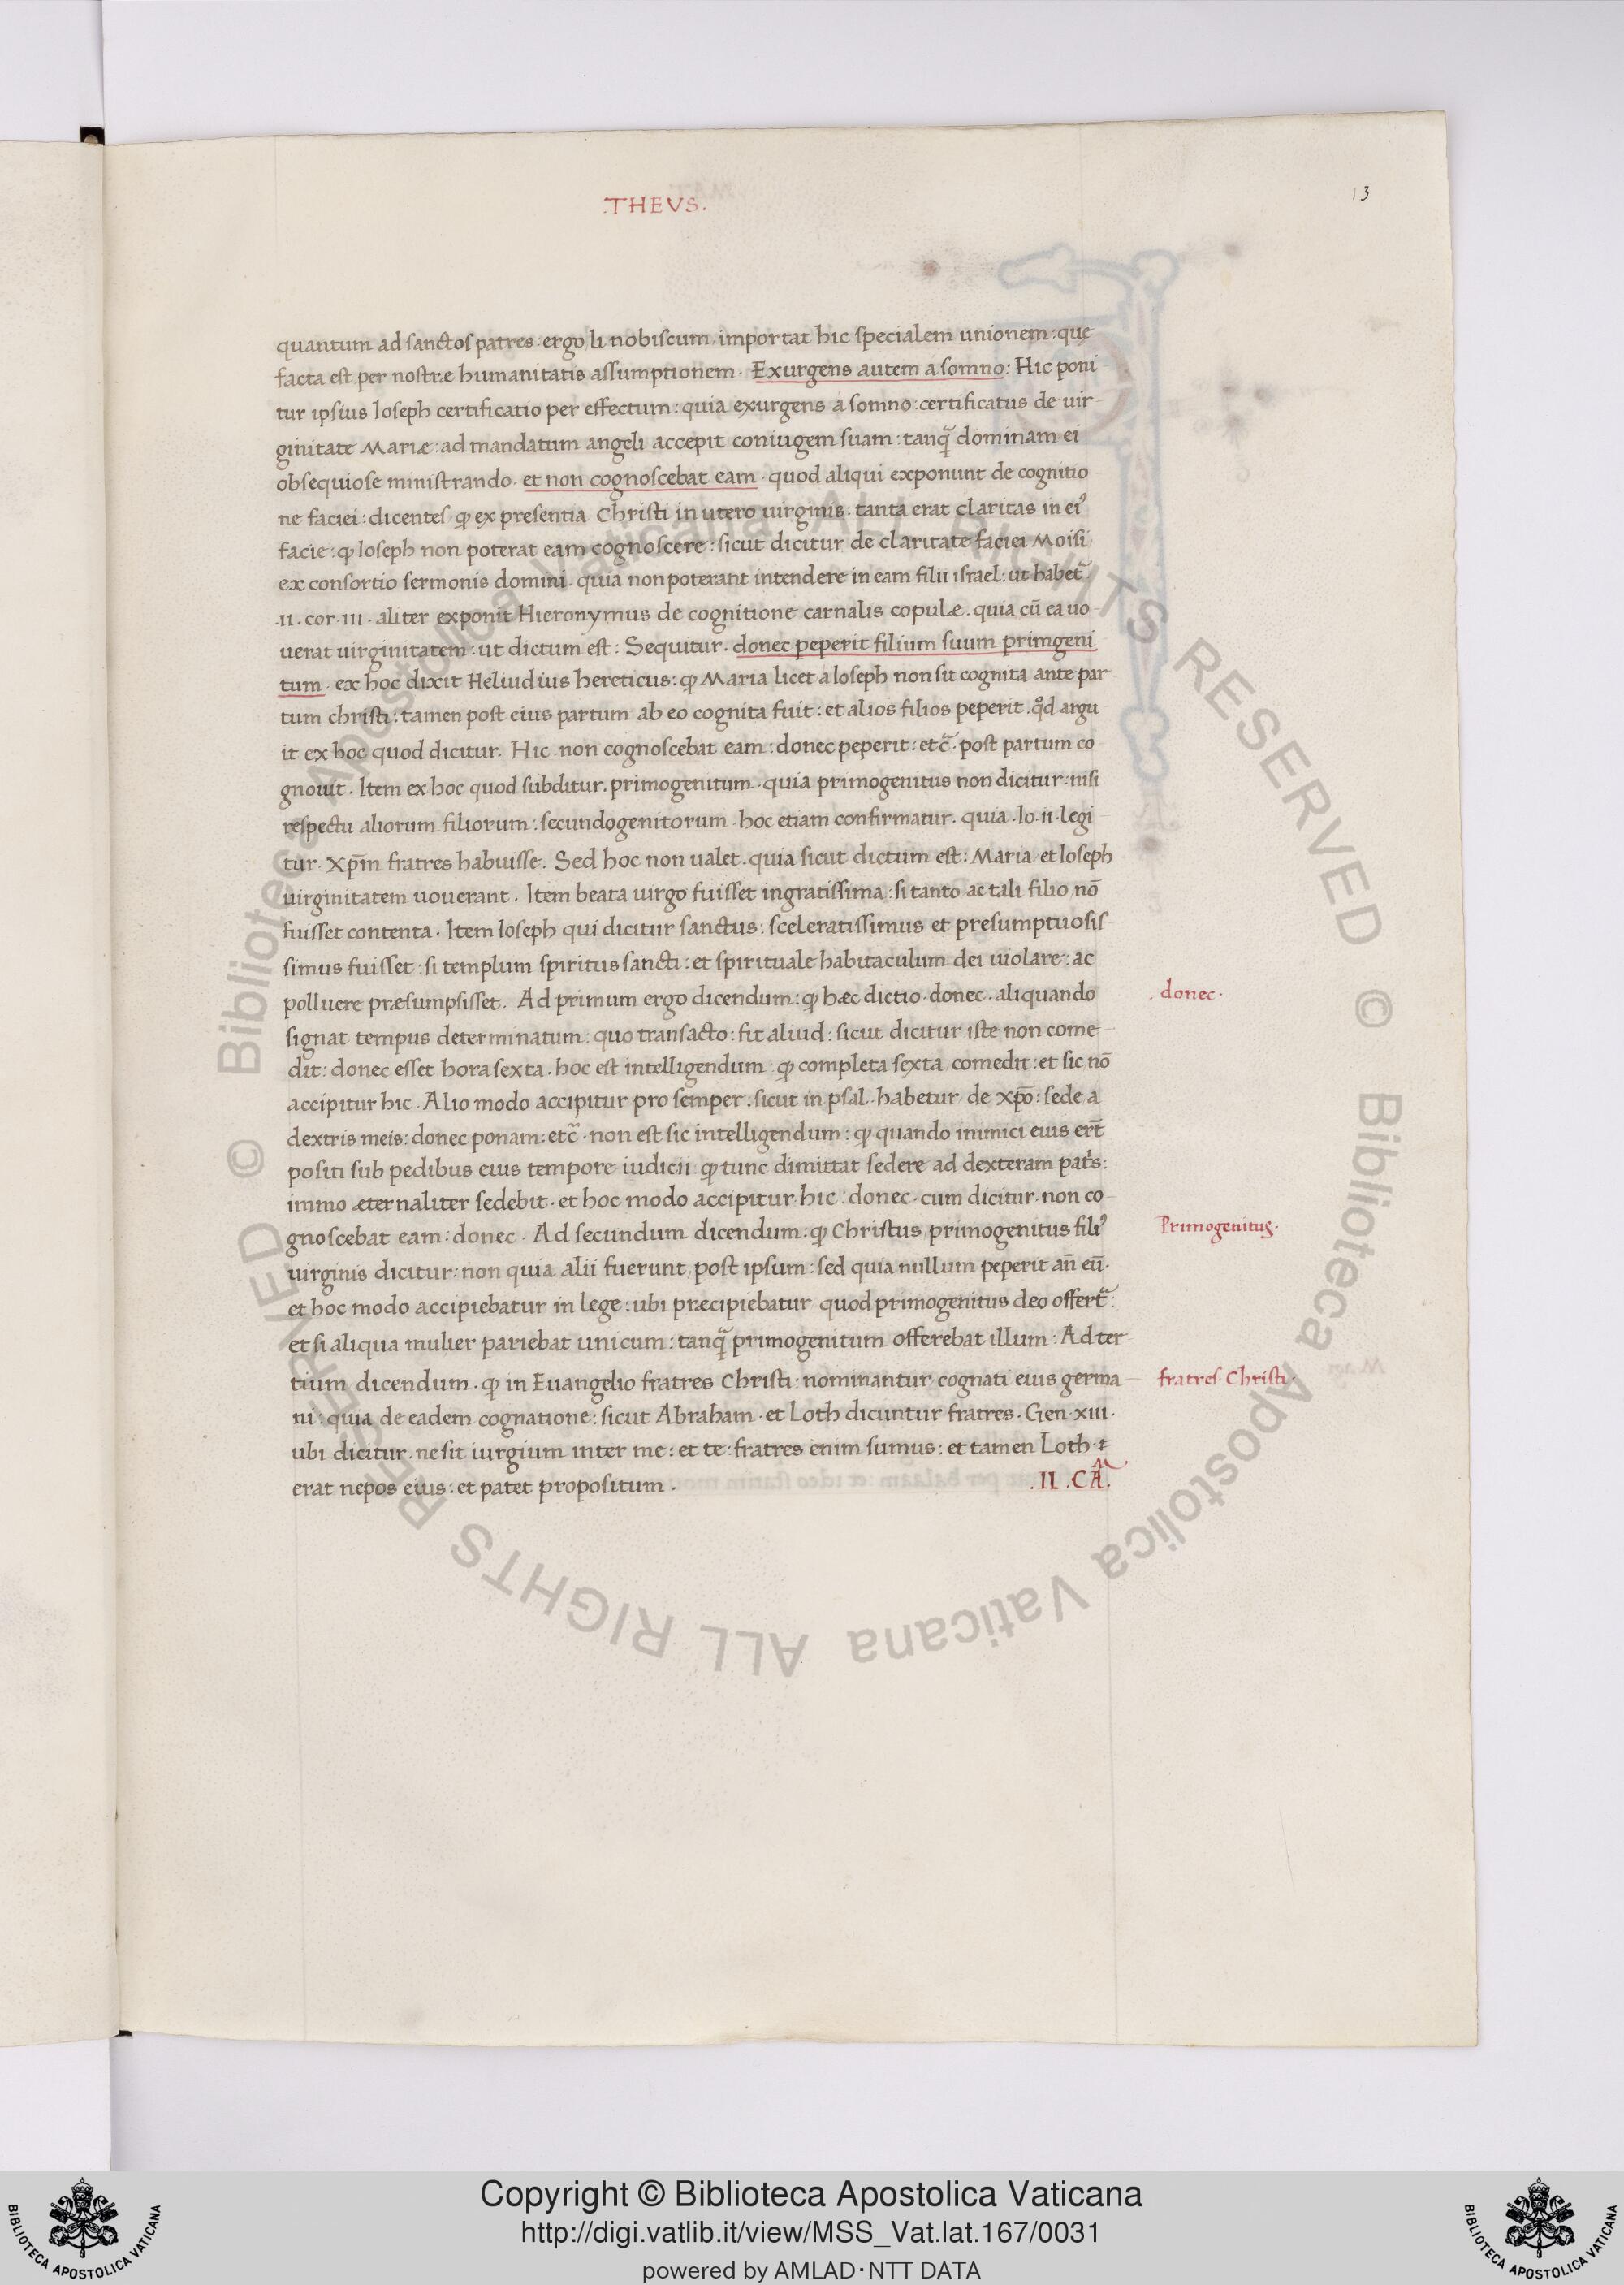 .THEVS.
13
quantum ad sanctos patres: ergo li nobiscum. importat hic specialem unionem: que
facta est per nostræ humanitatis assumptionem. Exurgens autem a somno: Hic poni
tur ipsius Ioseph certificatio per effectum: quia exurgens a somno: certificatus de uir-
ginitate Mariæ: ad mandatum angeli accepit coniugem suam: tanq̃ dominam ei
obsequiose ministrando. et non cognoscebat eam. quod aliqui exponunt de cognitio
ne faciei: dicentes ꝙ ex presentia Christi in utero uirginis. tanta erat claritas in eiꝰ
facie: ꝙ Ioseph non poterat eam cognoscere: sicut dicitur de claritate faciei Moisi
ex consortio sermonis domini. quia non poterant intendere in eam filii israel: ut habet̃.
.II. cor. III. aliter exponit Hieronymus de cognitione carnalis copulæ. quia cũ ea uo-
uerat uirginitatem: ut dictum est: Sequitur. donec peperit filium suum primgeni
tum. ex hoc dixit Heliudius hereticus: ꝙ Maria licet a Ioseph non sit cognita ante par
tum christi: tamen post eius partum ab eo cognita fuit: et alios filios peperit. qd̊ argu
it ex hoc quod dicitur. Hic. non cognoscebat eam: donec peperit: etc̃. post partum co
gnouit. Item ex hoc quod subditur. primogenitum. quia primogenitus non dicitur: nisi
respectu aliorum filiorum: secundogenitorum. hoc etiam confirmatur. quia. Io. ii. legi
tur. Xp̄m fratres habuisse. Sed hoc non ualet. quia sicut dictum est: Maria et Ioseph
uirginitatem uouerant. Item beata uirgo fuisset ingratissima: si tanto ac tali filio nō
fuisset contenta. Item Ioseph qui dicitur sanctus: sceleratissimus et presumptuosis
simus fuisset: si templum spiritus sancti: et spirituale habitaculum dei uiolare: ac
polluere præsumpsisset. Ad primum ergo dicendum: ꝙ hæc dictio. donec. aliquando
donec.
signat tempus determinatum: quo transacto: fit aliud: sicut dicitur iste non come-
dit: donec esset hora sexta. hoc est intelligendum ꝙ completa sexta comedit: et sic nō
accipitur hic. Alio modo accipitur pro semper: sicut in psal. habetur de xpō: sede a
dextris meis: donec ponam: etc̃. non est sic intelligendum: ꝙ quando inimici eius er̄t
positi sub pedibus eius tempore iudicii ꝙ tunc dimittat sedere ad dexteram pat̍s:
immo æternaliter sedebit. et hoc modo accipitur hic: donec. cum dicitur. non co-
gnoscebat eam: donec. Ad secundum dicendum: ꝙ Christus primogenitus filiꝰ
Primogenitus.
uirginis dicitur: non quia alii fuerunt post ipsum: sed quia nullum peperit an̄ eū.
et hoc modo accipiebatur in lege: ubi præcipiebatur quod primogenitus deo offert̃:
et si aliqua mulier pariebat unicum: tanq̃ primogenitum offerebat illum: Ad ter
tium dicendum. ꝙ in Euangelio fratres Christi: nominantur cognati eius germa
fratres Christi.
ni: quia de eadem cognatione: sicut Abraham. et Loth dicuntur fratres. Gen. XIII.
ubi dicitur. ne sit iurgium inter me: et te: fratres enim sumus: et tamen Loth.
erat nepos eius: et patet propositum. .II. CÃ.
© Biblioteca Apostolica Vaticana ALL RIGHTS RESERVED © Biblioteca Apostolica Vaticana ALL RIGHTS RESERVED
Copyright © Biblioteca Apostolica Vaticana
http://digi.vatlib.it/view/MSS_Vat.lat.167/0031
powered by AMLAD·NTT DATA
BIBLIOTECA APOSTOLICA VATICANA
BIBLIOTECA APOSTOLICA VATICANA